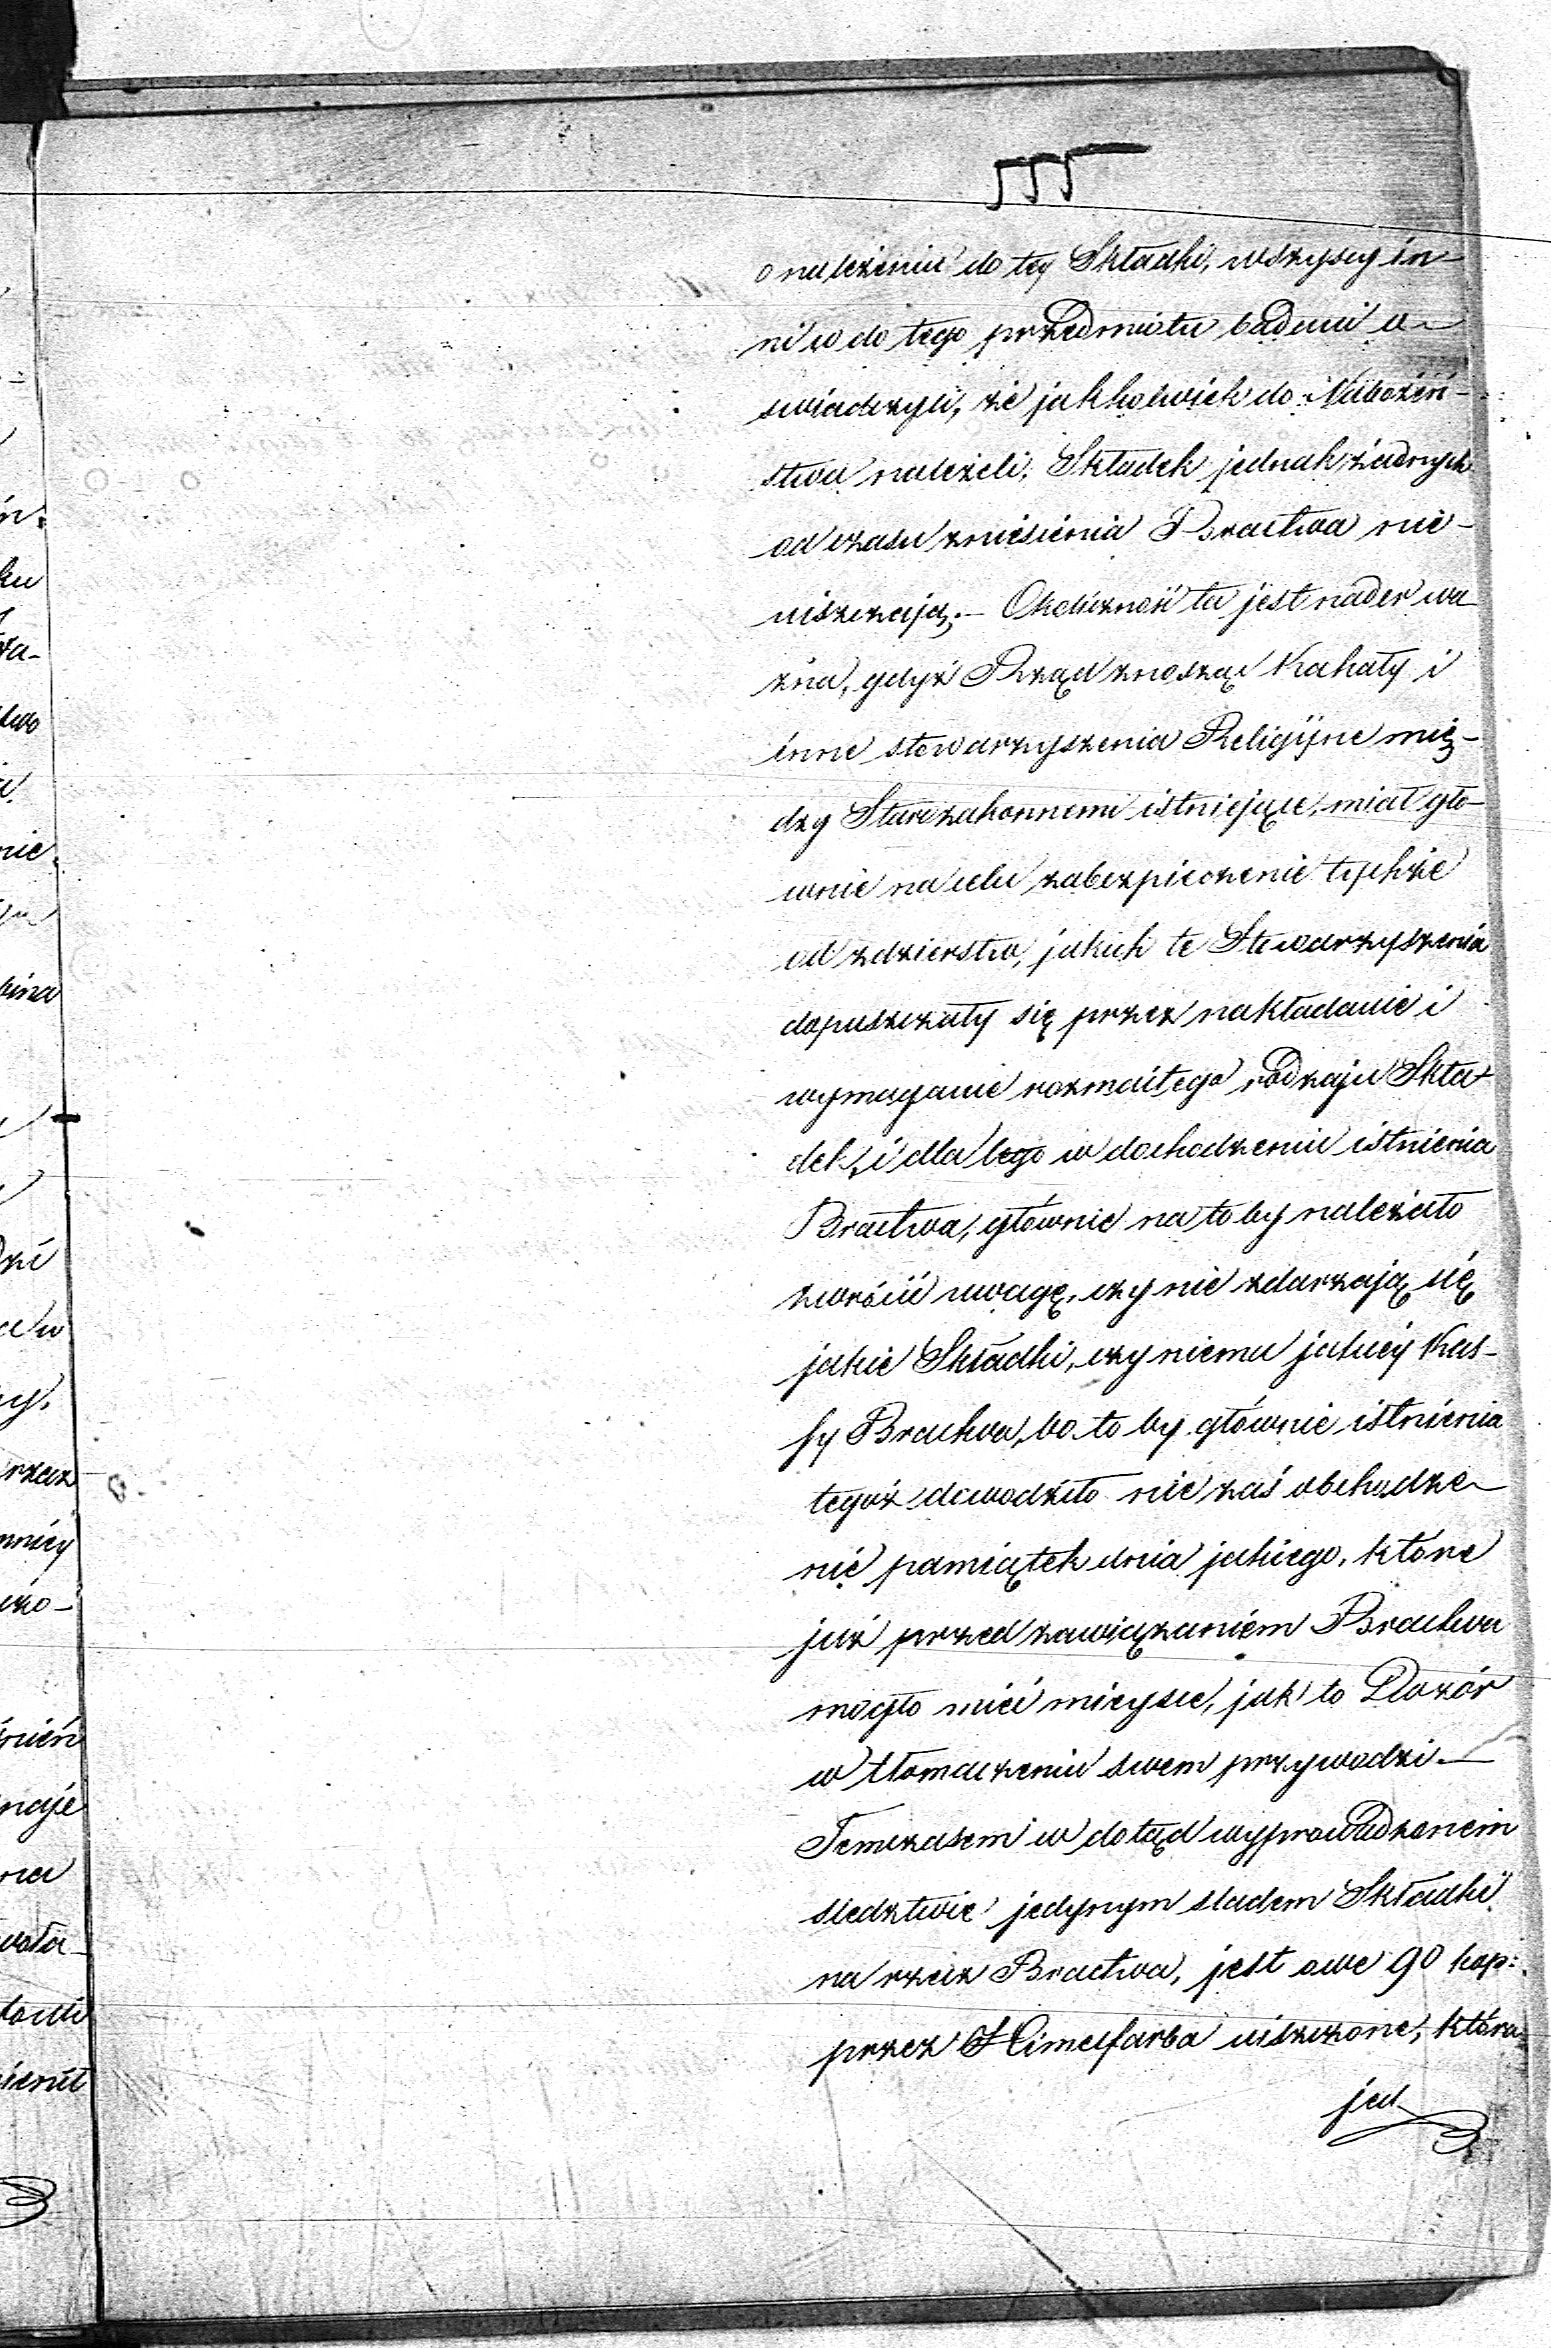 555
o należeniu do tey Składki, wszyscy in-
ni w do tego przedmiotu badani o-
swiadczyli, że jakkolwiek do Nabożeń-
stwa należeli, Składek jednak żadnych
od czasu zniesienia Bractwa nie-
uiszczają.- Okoliczność ta jest nader wa
żna, gdyż Rząd znosząc Kahały i
inne stowarzyszenia Religijne mię-
dzy Starozakonnemi istniejące, miał głó-
wnie na celu zabezpieczenie tychże
od zdzierstw, jakich te Stowarzyszenia
dopuszczały się przez nakładanie i
wymaganie rozmaitego rodzaju Skła-
dek, i dla tego w dochodzeniu istnienia
Bractwa, głównie na to by należało
zwrócić uwagę, czy nie zdarzają się
jakie Składki, czy niema jakiéy Kas-
sy Bractwa, bo to by głównie istnienia
tegoż dowodziło nie zaś obchodze-
nie pamiątek dnia jakiego, które
już przed zawiązaniem Bractwa
mogło mieć mieysce, jak to Dozór
w tłomaczeniu swem przywodzi.—
Temczasem w dotąd wyprowadzonem
sledztwie jedynym sladem Składki
na rzecz Bractwa, jest owe 90 kop:
przez Himelfarba uiszczone, która
jed